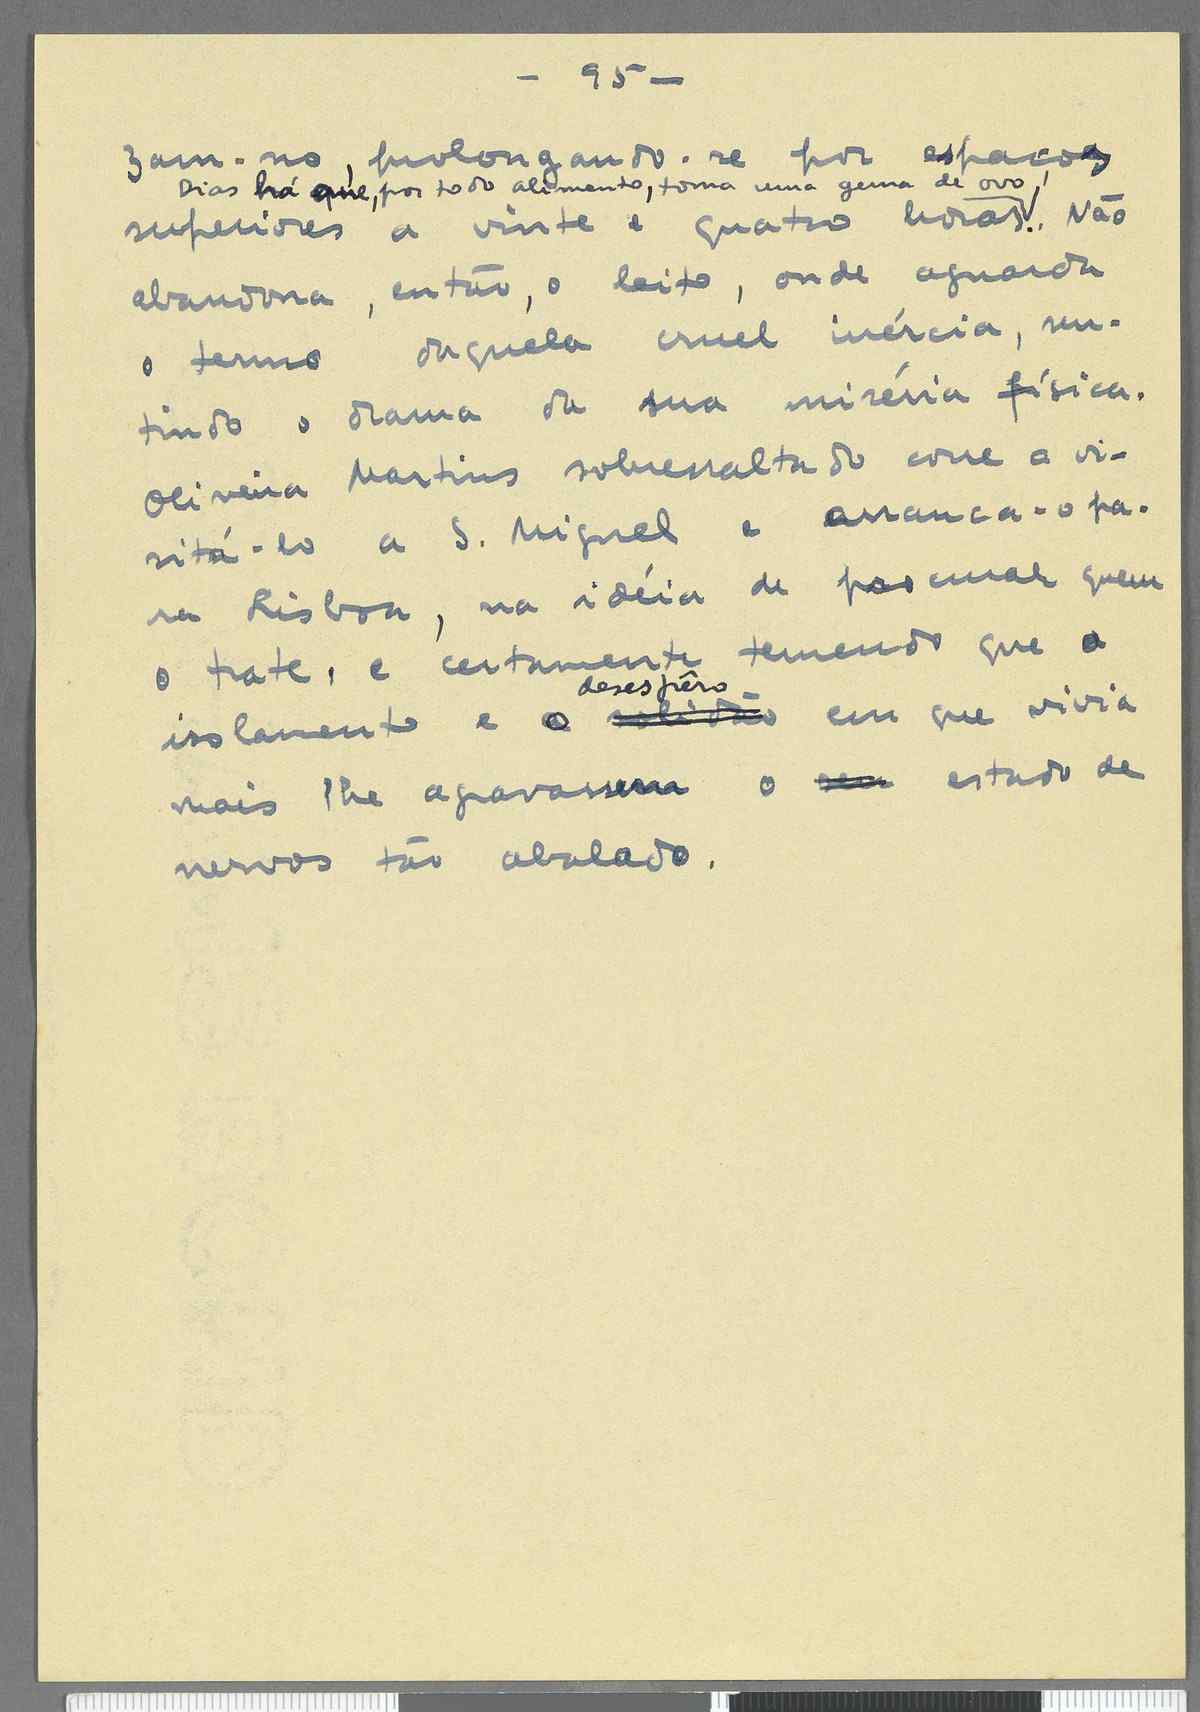 - 95 -
zam-no, prolongando-se por espaços
Dias há que, por todo alimento, toma uma gema de ovo!
superiores a vinte e quatro horas!. Não
abandona, então, o leito, onde aguarda
o termo daquela cruel inércia, sen-
tindo o drama da sua miséria física.
Oliveira Martins sobressaltado corre a vi-
sitá-lo a S. Miguel e arranca-o pa-
ra Lisboa, na idéia de procurar quem
o trate, e certamente temendo que o
desespêro
isolamento e o solidão em que vivia
mais lhe agravassem o seu estado de
nervos tão abalado.